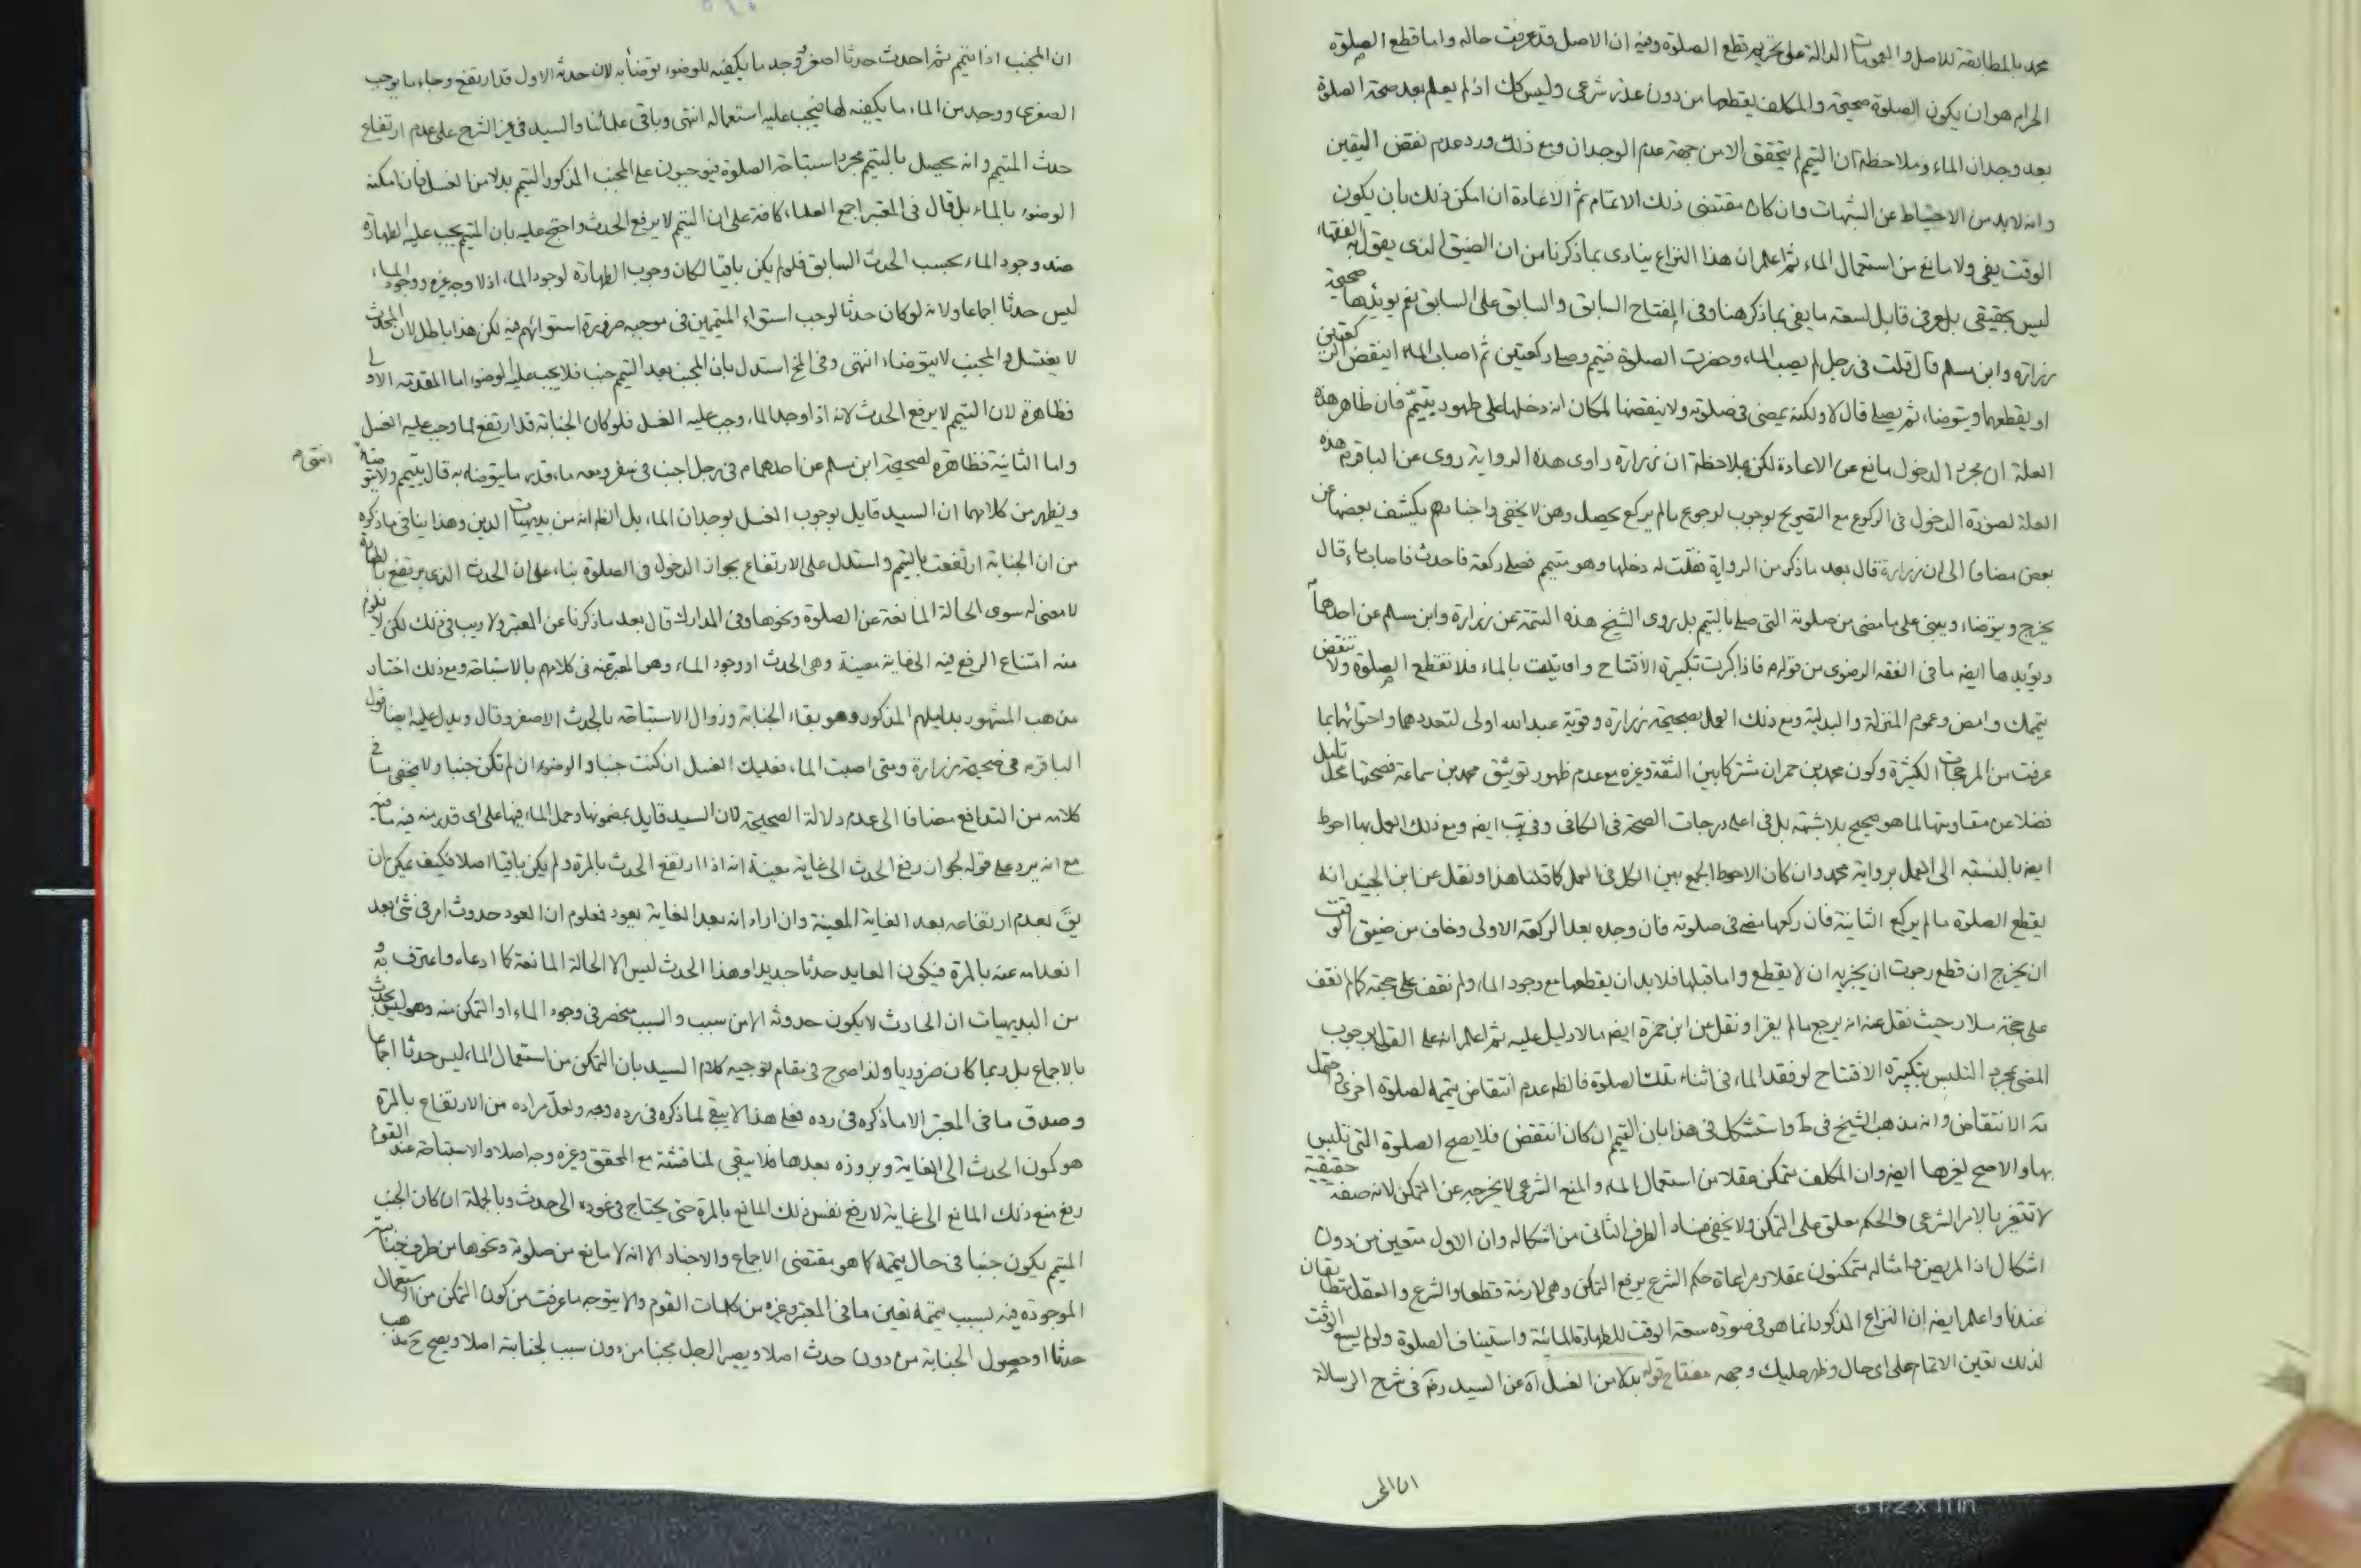 محمد بالمطابقة للاصل والعمومات الدالة على تحريم قطع الصلوة وفيه ان الاصل قد عرفت حاله واما قطع الصلوة
الحرام هو ان يكون الصلوة صحيحة والمكلف يقطعها من دون عذر شرعى وليس كك اذ لم يعلم بعد صحة الصلوة
بعد وجدان الماء وملاحظة ان التيمم لم يتحقق الا من جهة عدم الوجدان ومع ذلك ورد عدم نقض اليقين
وانه لابد من الاحتياط عن الشبهات وان كان مقتضى ذلك الاتمام ثم الاعادة ان امكن ذلك بان يكون
الوقت يفى ولا مانع من استعمال الماء ثم اعلم ان هذا النزاع ينادى بما ذكرنا من ان الضيق الذى يقول به الفقهاء
ليس بحقيقى بل عرفى قابل لسعة ما يفى بما ذكر هنا وفى المفتاح السابق والسابق على السابق نعم يؤيدها صحيحة
زرارة وابن مسلم قال قلت فى رجل لم يصب الماء وحضرت الصلوة فتيمم وصلى ركعتين ثم اصاب الماء اينقض الركعتين
او يقطعهما ويتوضاء ثم يصلى قال لا ولكنه يمضى فى صلوته ولا ينقضها لمكان انه دخلها على طهور بتيمم فان ظاهر هذه
العلة ان مجرد الدخول مانع عن الاعادة لكن بملاحظة ان زرارة راوى هذه الرواية روى عن الباقر ع هذه
العلة لصورة الدخول فى الركوع مع التصريح بوجوب الرجوع ما لم يركع يحصل وهن لا يخفى واخبارهم يكشف بعضها عن
بعض مضافا الى ان زرارة قال بعد ما ذكر من الرواية فقلت له دخلها وهو متيمم فصلى ركعة فاحدث فاصاب ماء قال
يخرج ويتوضاء ويبنى على ما مضى من صلوته التى صلى بالتيمم بل روى الشيخ هذه التتمة عن زرارة وابن مسلم عن احدهما
ويؤيدها ايضه ما فى الفقه الرضوى من قوله ع فاذا كبرت تكبيرة الافتتاح واوتيت بالماء فلا تقطع الصلوة ولا تنقض
تيممك وامض وعموم المنزلة والبدلية ومع ذلك العمل بصحيحة زرارة وقوية عبد الله اولى لتعددهما واحتوائهما بما
عرفت من المرجحات الكثيرة وكون محمد بن حمران مشتركا بين الثقة وغيره مع عدم ظهور توثيق محمد بن سماعة فصحتها محل تامل
فضلا عن مقاومتها لما هو صحيح بلا شبهة بل فى اعلى درجات الصحة فى الكافى وفى يب ايضه ومع ذلك العمل بها احوط
ايضه بالنسبة الى العمل برواية محمد وان كان الاحوط الجمع بين الكل فى العمل كما قلنا هذا ونقل عن ابن الجنيد انه
يقطع الصلوة ما لم يركع الثانية فان ركعها مضى فى صلوته فان وجده بعد الركعة الاولى وخاف من ضيق الوقت
ان يخرج ان قطع رجوت ان يجزيه ان لا يقطع واما قبلها فلابد ان يقطعها مع وجود الماء ولم نقف على حجته كما لم نقف
على حجة سلار حيث نقل عنه انه يرجع ما لم يقرا ونقل عن ابن حمزة ايضه ما لا دليل عليه ثم اعلم انه على القول بوجوب
المضى بمجرد التلبس بتكبيرة الافتتاح لو فقد الماء فى اثناء تلك الصلوة فالظه عدم انتقاض تيممه لصلوة اخرى واحتمل
الانتقاض وانه مذهب الشيخ فى ط واستشكل فى هذا بان التيمم ان كان انتقض فلا يصح الصلوة التى تلبس
بها والا صح لغيرها ايضه وان المكلف متمكن عقلا من استعمال الماء والمنع الشرعى لا يخرجه عن التمكن لانه صفة حقيقية
لا تتغير بالامر الشرعى والحكم معلق على التمكن ولا يخفى فساد الطرف الثانى من اشكاله وان الاول متعين من دون
اشكال اذ المريض وامثاله متمكنون عقلا ومراعاة حكم الشرع يرفع التمكن وهى لازمة قطعا والشرع والعقل متطابقان
عندنا واعلم ايضه ان النزاع المذكور انما هو فى صورة سعة الوقت للطهارة المائية واستيناف الصلوة ولو لم يسع الوقت
لذلك تعين الاتمام على اى حال وظهر عليك وجهه مفتاح قوله بدلا من الغسل اه عن السيد ره فى شرح الرسالة
ان المجنب
ان المجنب اذا تيمم ثم احدث حدثا اصغر ووجد ما يكفيه للوضوء توضأ به لان حدثه الاول قد ارتفع وجاء ما يوجب
الصغرى ووجد من الماء ما يكفيه لها فيجب عليه استعماله انتهى وباقى علمائنا والسيد فى غير الشرح على عدم ارتفاع
حدث المتيمم وانه يحصل بالتيمم مجرد استباحة الصلوة فيوجبون على المجنب المذكور التيمم بدلا من الغسل فان امكنه
الوضوء بالماء بل قال فى المعتبر اجمع العلماء كافة على ان التيمم لا يرفع الحدث واحتج عليه بان المتيمم يجب عليه الطهارة
عند وجود الماء بحسب الحدث السابق فلو لم يكن باقيا لكان وجوب الطهارة لوجود الماء اذ لا وجه غيره ووجود الماء
ليس حدثا اجماعا ولانه لو كان حدثا لوجب استواء المتيممين فى موجبه ضرورة استوائهم فيه لكن هذا باطل لان المحدث
لا يغتسل والمجنب لا يتوضاء انتهى وفى لخ استدل بان المجنب بعد التيمم جنب فلا يجب عليه الوضوء اما المقدمة الاولى
فظاهرة لان التيمم لا يرفع الحدث لانه اذا وجد الماء وجب عليه الغسل فلو كان الجنابة قد ارتفع لما وجب عليه الغسل
واما الثانية فظاهرة لصحيحة ابن مسلم عن احدهما ع فى رجل اجنب فى سفر ومعه ماء قدر ما يتوضاء به قال يتيمم ولا يتوضاء انتهى
ويظهر من كلامهما ان السيد قايل بوجوب الغسل بوجدان الماء بل الظه انه من بديهيات الدين وهذا ينافى ما ذكره
من ان الجنابة ارتفعت بالتيمم واستدل على الارتفاع بجواز الدخول فى الصلوة بناء على ان الحدث الذى يرتفع بالطهارة
لا معنى له سوى الحالة المانعة عن الصلوة ونحوها وفى المدارك قال بعد ما ذكرنا عن المعتبر ولا ريب فى ذلك لكن لا يلزم
منه امتناع الرفع فيه الى غاية معينة وهى الحدث او وجود الماء وهو المعبر عنه فى كلامهم بالاستباحة ومع ذلك اختار
مذهب المشهور بدليلهم المذكور وهو بقاء الجنابة وزوال الاستباحة بالحدث الاصغر وقال ويدل عليه ايضا قول
الباقر ع فى صحيحة زرارة ومتى اصبت الماء فعليك الغسل ان كنت جنبا والوضوء ان لم تكن جنبا ولا يخفى ما فى
كلامه من التدافع مضافا الى عدم دلالة الصحيحة لان السيد قايل بمضمونها وحمل الماء فيها على اى قدر منه فيه ما فيه
مع انه يرد على قوله بجواز رفع الحدث الى غاية معينة انه اذا ارتفع الحدث بالمرة ولم يكن باقيا اصلا فكيف يمكن ان
يق بعدم ارتفاعه بعد الغاية المعينة وان اراد انه بعد الغاية يعود فمعلوم ان العود حدوث امر فى شئ بعد
انعدامه عنه بالمرة فيكون العايد حدثا جديدا وهذا الحدث ليس الا الحالة المانعة كما ادعاه واعترف به و
من البديهيات ان الحادث لا يكون حدوثه الا من سبب والسبب منحصر فى وجود الماء او التمكن منه وهو ليس بحدث
بالاجماع بل ربما كان ضروريا ولذا صرح فى مقام توجيه كلام السيد بان التمكن من استعمال الماء ليس حدثا اجماعا
وصدق ما فى المعتبر الا ما ذكره فى رده فعلى هذا لا يبقى لما ذكره فى رده وجه ولعل مراده من الارتفاع بالمرة
هو كمون الحدث الى الغاية وبروزه بعدها فلا يبقى لمناقشته مع المحقق وغيره وجه اصلا والاستباحة عند القوم
رفع منع ذلك المانع الى غاية لا رفع نفس ذلك المانع بالمرة حتى يحتاج فى عوده الى حدث وبالجملة ان كان الجنب
المتيمم يكون جنبا فى حال تيممه كما هو مقتضى الاجماع والاخبار الا انه لا مانع من صلوته ونحوها من طرف جنابته
الموجودة فيه لسبب تيممه تعين ما فى المعتبر وغيره من كلمات القوم والا يتوجه ما عرفت من كون التمكن من استعمال
حدثا او حصول الجنابة من دون حدث اصلا ويصير الرجل مجنبا من دون سبب لجنابته اصلا ويصح ح مذهب